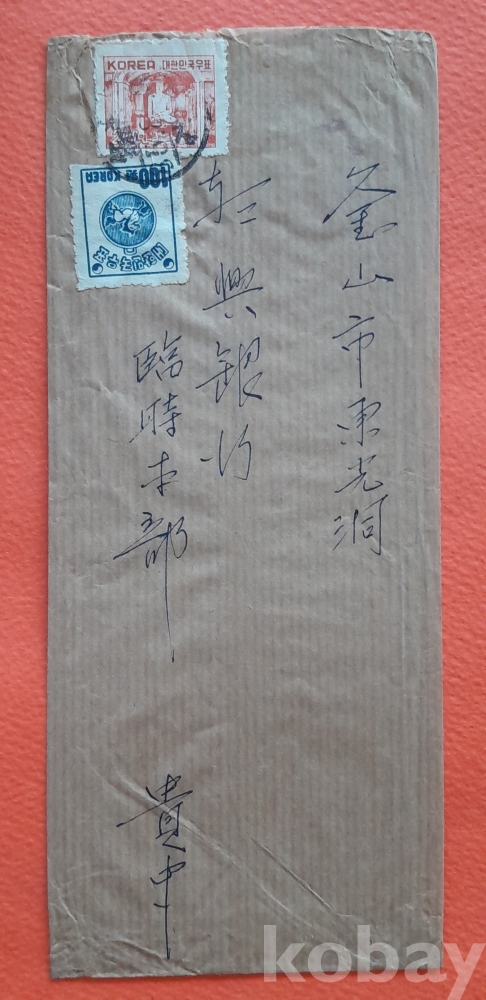 KOREA 대한민국우표
100 KOREA
대한민국우표
釜山市東光洞
朝興銀行
臨時本部
貴中
kobay